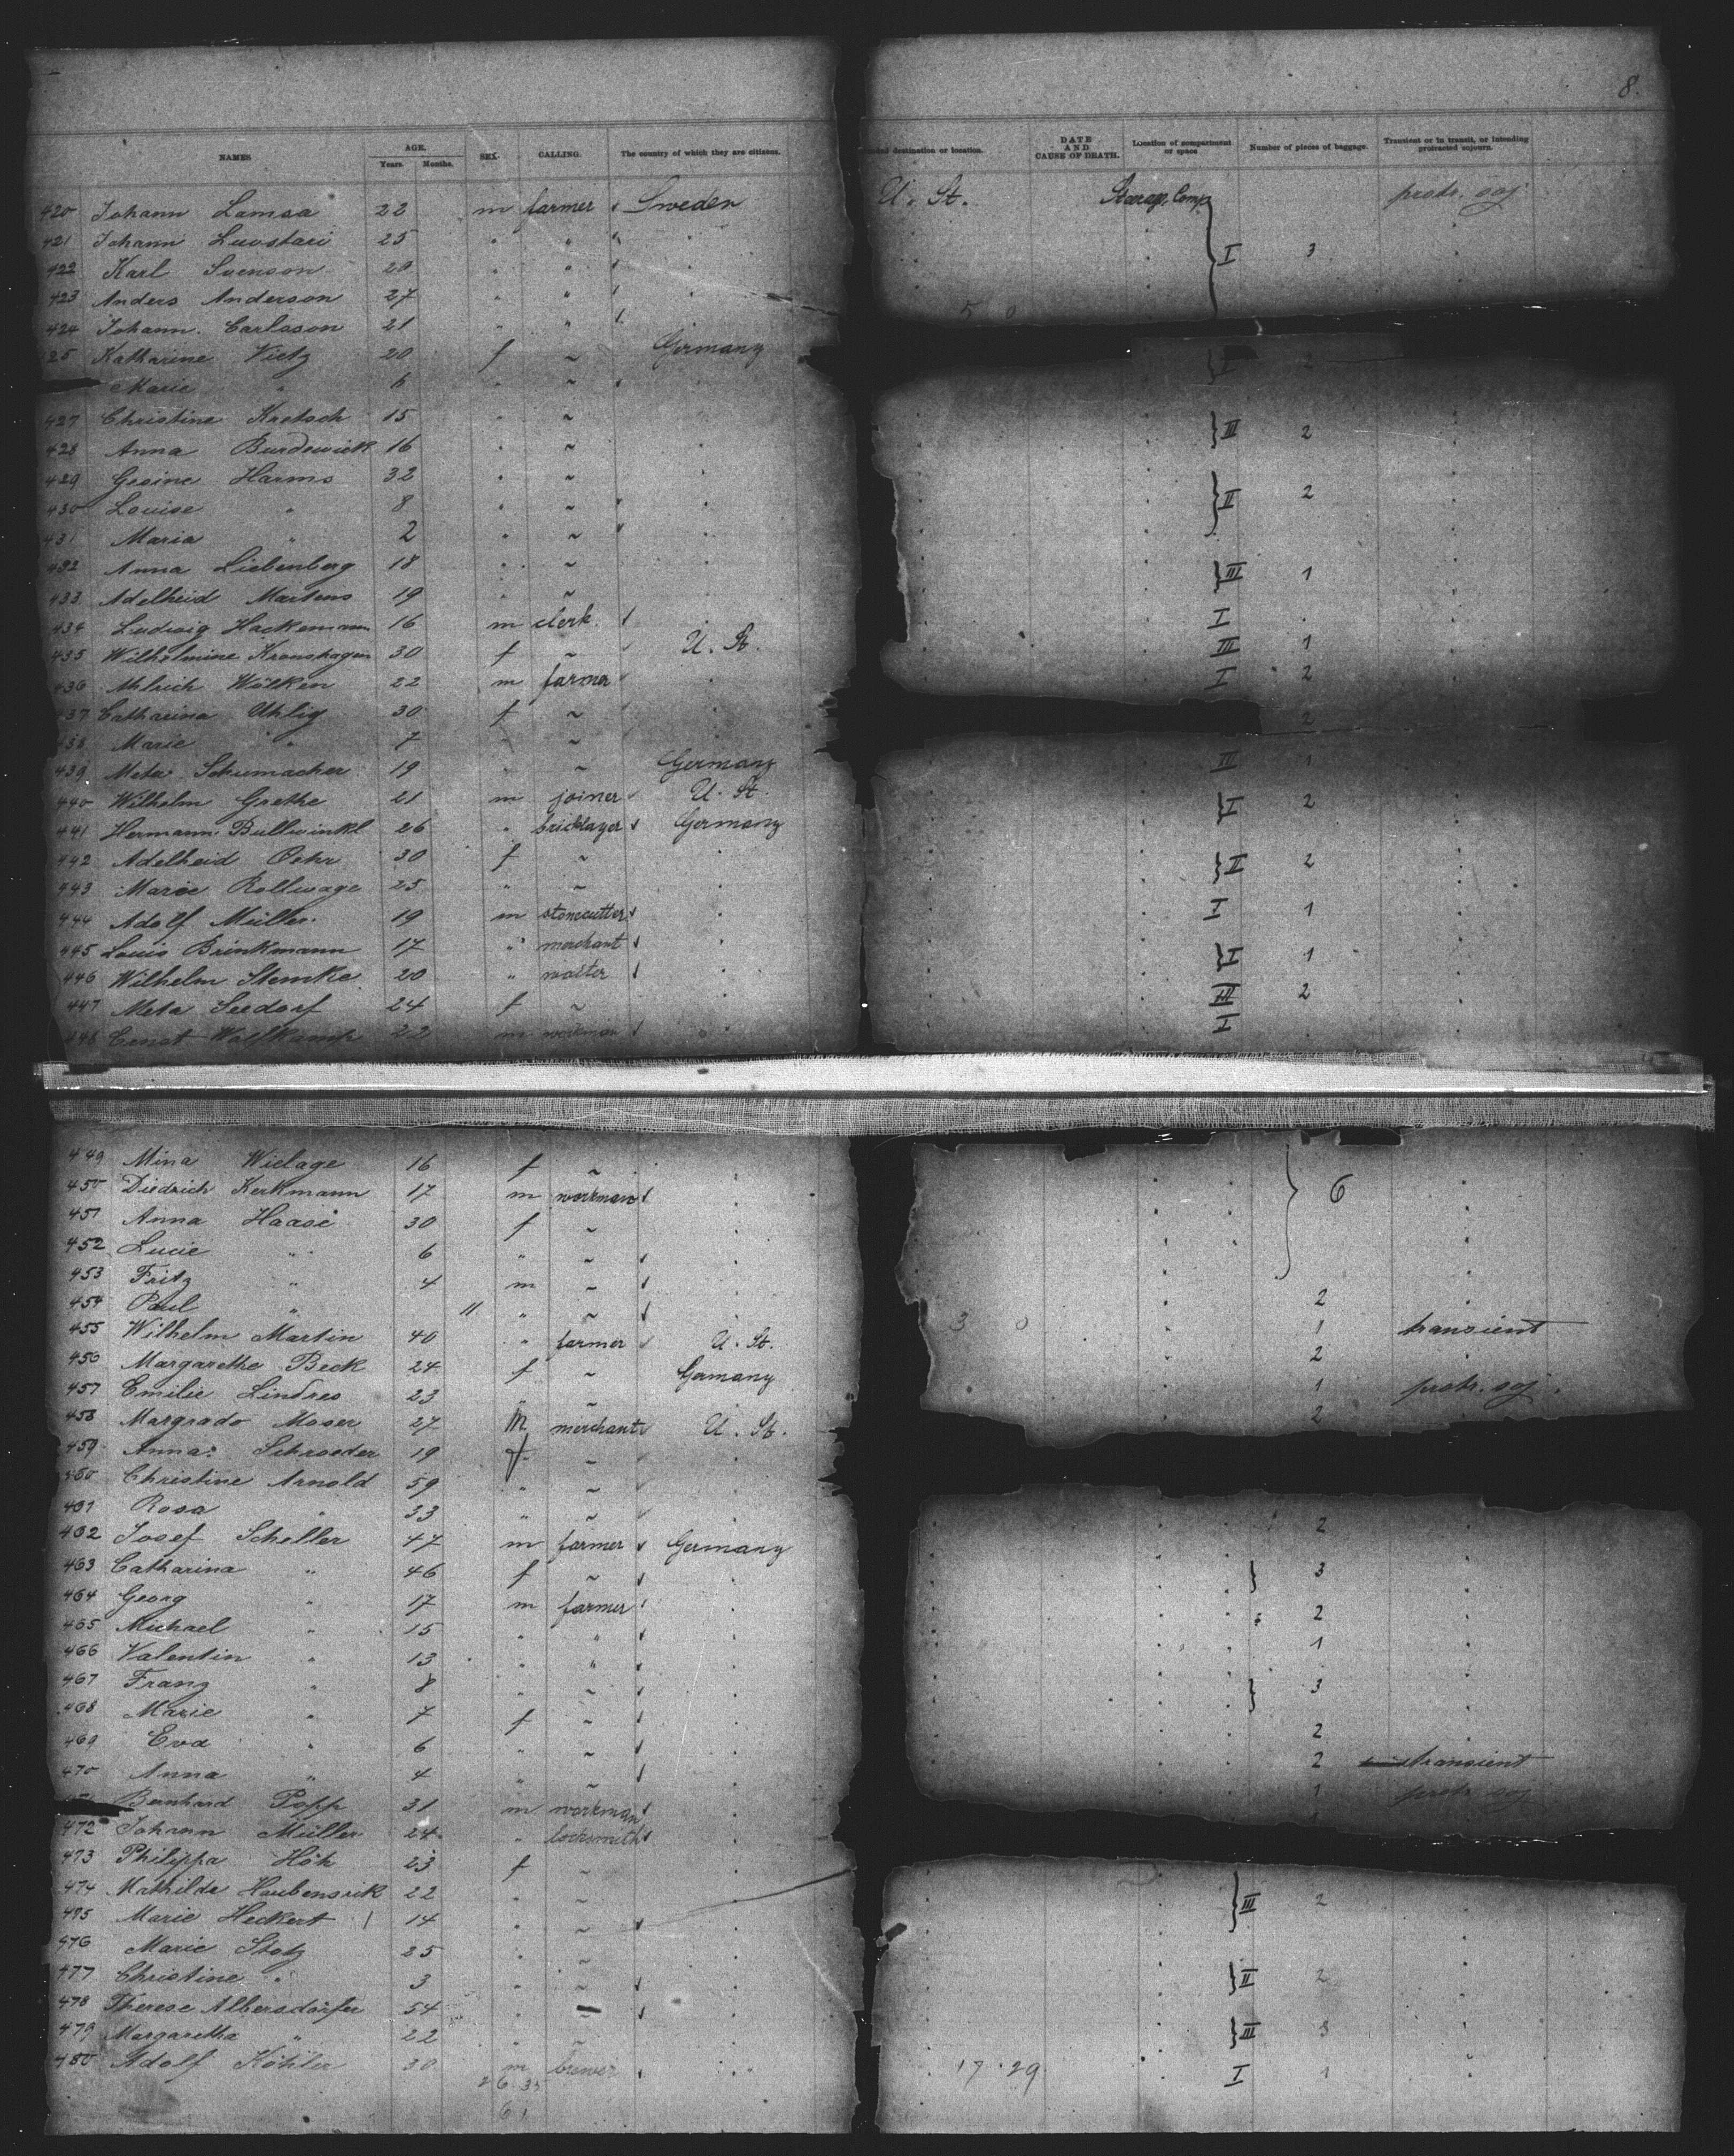 8.
NAMES. AGE. Years. Months. SEX. CALLING. The country of which they are citizens. destination or location. DATE AND CAUSE OF DEATH. Location of compartment or space Number of pieces of baggage. Transient or in transit, or intending protracted sojourn.
420 Johann Lamsa 22 m farmer Sweden U. St. Steerage Comp protr. soj.
421 Johann 25 " "
422 Karl Svenson " " } I 3
423 Anders Anderson 27 " "
424 Johann Carlsson 21 " " 5 0
25 Katharine Vietz 20 f ~ Germany } I 2
Marie " 6 " ~
427 Christine Kretsch 15 " ~ } III 2
428 Anna Burdewick 16 " ~
429 Gesine Harms 32 " ~ } II 2
430 Louise " 8 " ~
431 Maria " 2 " ~
432 Anna Liebenberg 18 " ~ } III 1
433 Adelheid Martens 19 " ~
434 Ludwig Hackemann 16 m clerk. I
435 Wilhelmine Kronshagen 30 f ~ U. St. III 1
436 Ahlrich Wölken 22 m farmer I 2
437 Catharina Uhlig 30 f ~ 2
438 Marie " 7 " ~
439 Meta Schumacher 19 " ~ Germany III 1
440 Wilhelm Grethe 21 m joiner U. St. } I 2
441 Hermann Bullwinkl 26 " bricklayer Germany
442 Adelheid Oehr 30 f ~ } II 2
443 Marie Rollwage 25 " ~
444 Adolf Müller 19 m stonecutter I 1
445 Louis Brinkmann 17 " merchant } I 1
446 Wilhelm Stemke 20 " waiter
447 Meta Seedorf 24 f ~ III 2
448 Ernst Wolfkamp 22 m workman I
449 Mina Wielage 16 f ~
450 Diedrich Kerkmann 17 m workman } 6
451 Anna Haase 30 f ~
452 Lucie " 6 " ~
453 Fritz " 4 m ~
454 Paul " 11 " ~ 2
455 Wilhelm Martin 40 " farmer U. St. 3 0 1 transient
456 Margarethe Beck 24 f ~ Germany 2
457 Emilie Lindres 23 " ~ 1 protr. soj.
458 Margrado Moser 27 m merchant U. St. 2
459 Anna Schroeder 19 f ~
460 Christine Arnold 59 " ~
461 Rosa " 33 " ~
462 Josef Scheller 47 m farmer Germany 2
463 Catharina " 46 f ~ } 3
464 Georg " 17 m farmer
465 Michael " 15 " " 2
466 Valentin " 13 " " 1
467 Franz " 8 " ~ } 3
468 Marie " 7 f ~
469 Eva " 6 " ~ 2
470 Anna " 4 " ~ 2 transient
Bernhard Popp 31 m workman 1 protr. soj
472 Johann Müller 24 " locksmith
473 Philippa Höh 23 f ~
474 Mathilde Haubensrik 22 " ~ } III 2
475 Marie Heckert 14 " ~
476 Marie Stotz 25 " ~
477 Christine " 3 " ~ } II 2
478 Therese Albersdörfer 54 " ~
479 Margaretha " 22 " ~ } III 3
480 Adolf Köhler 30 m brewer 17 29 I 1